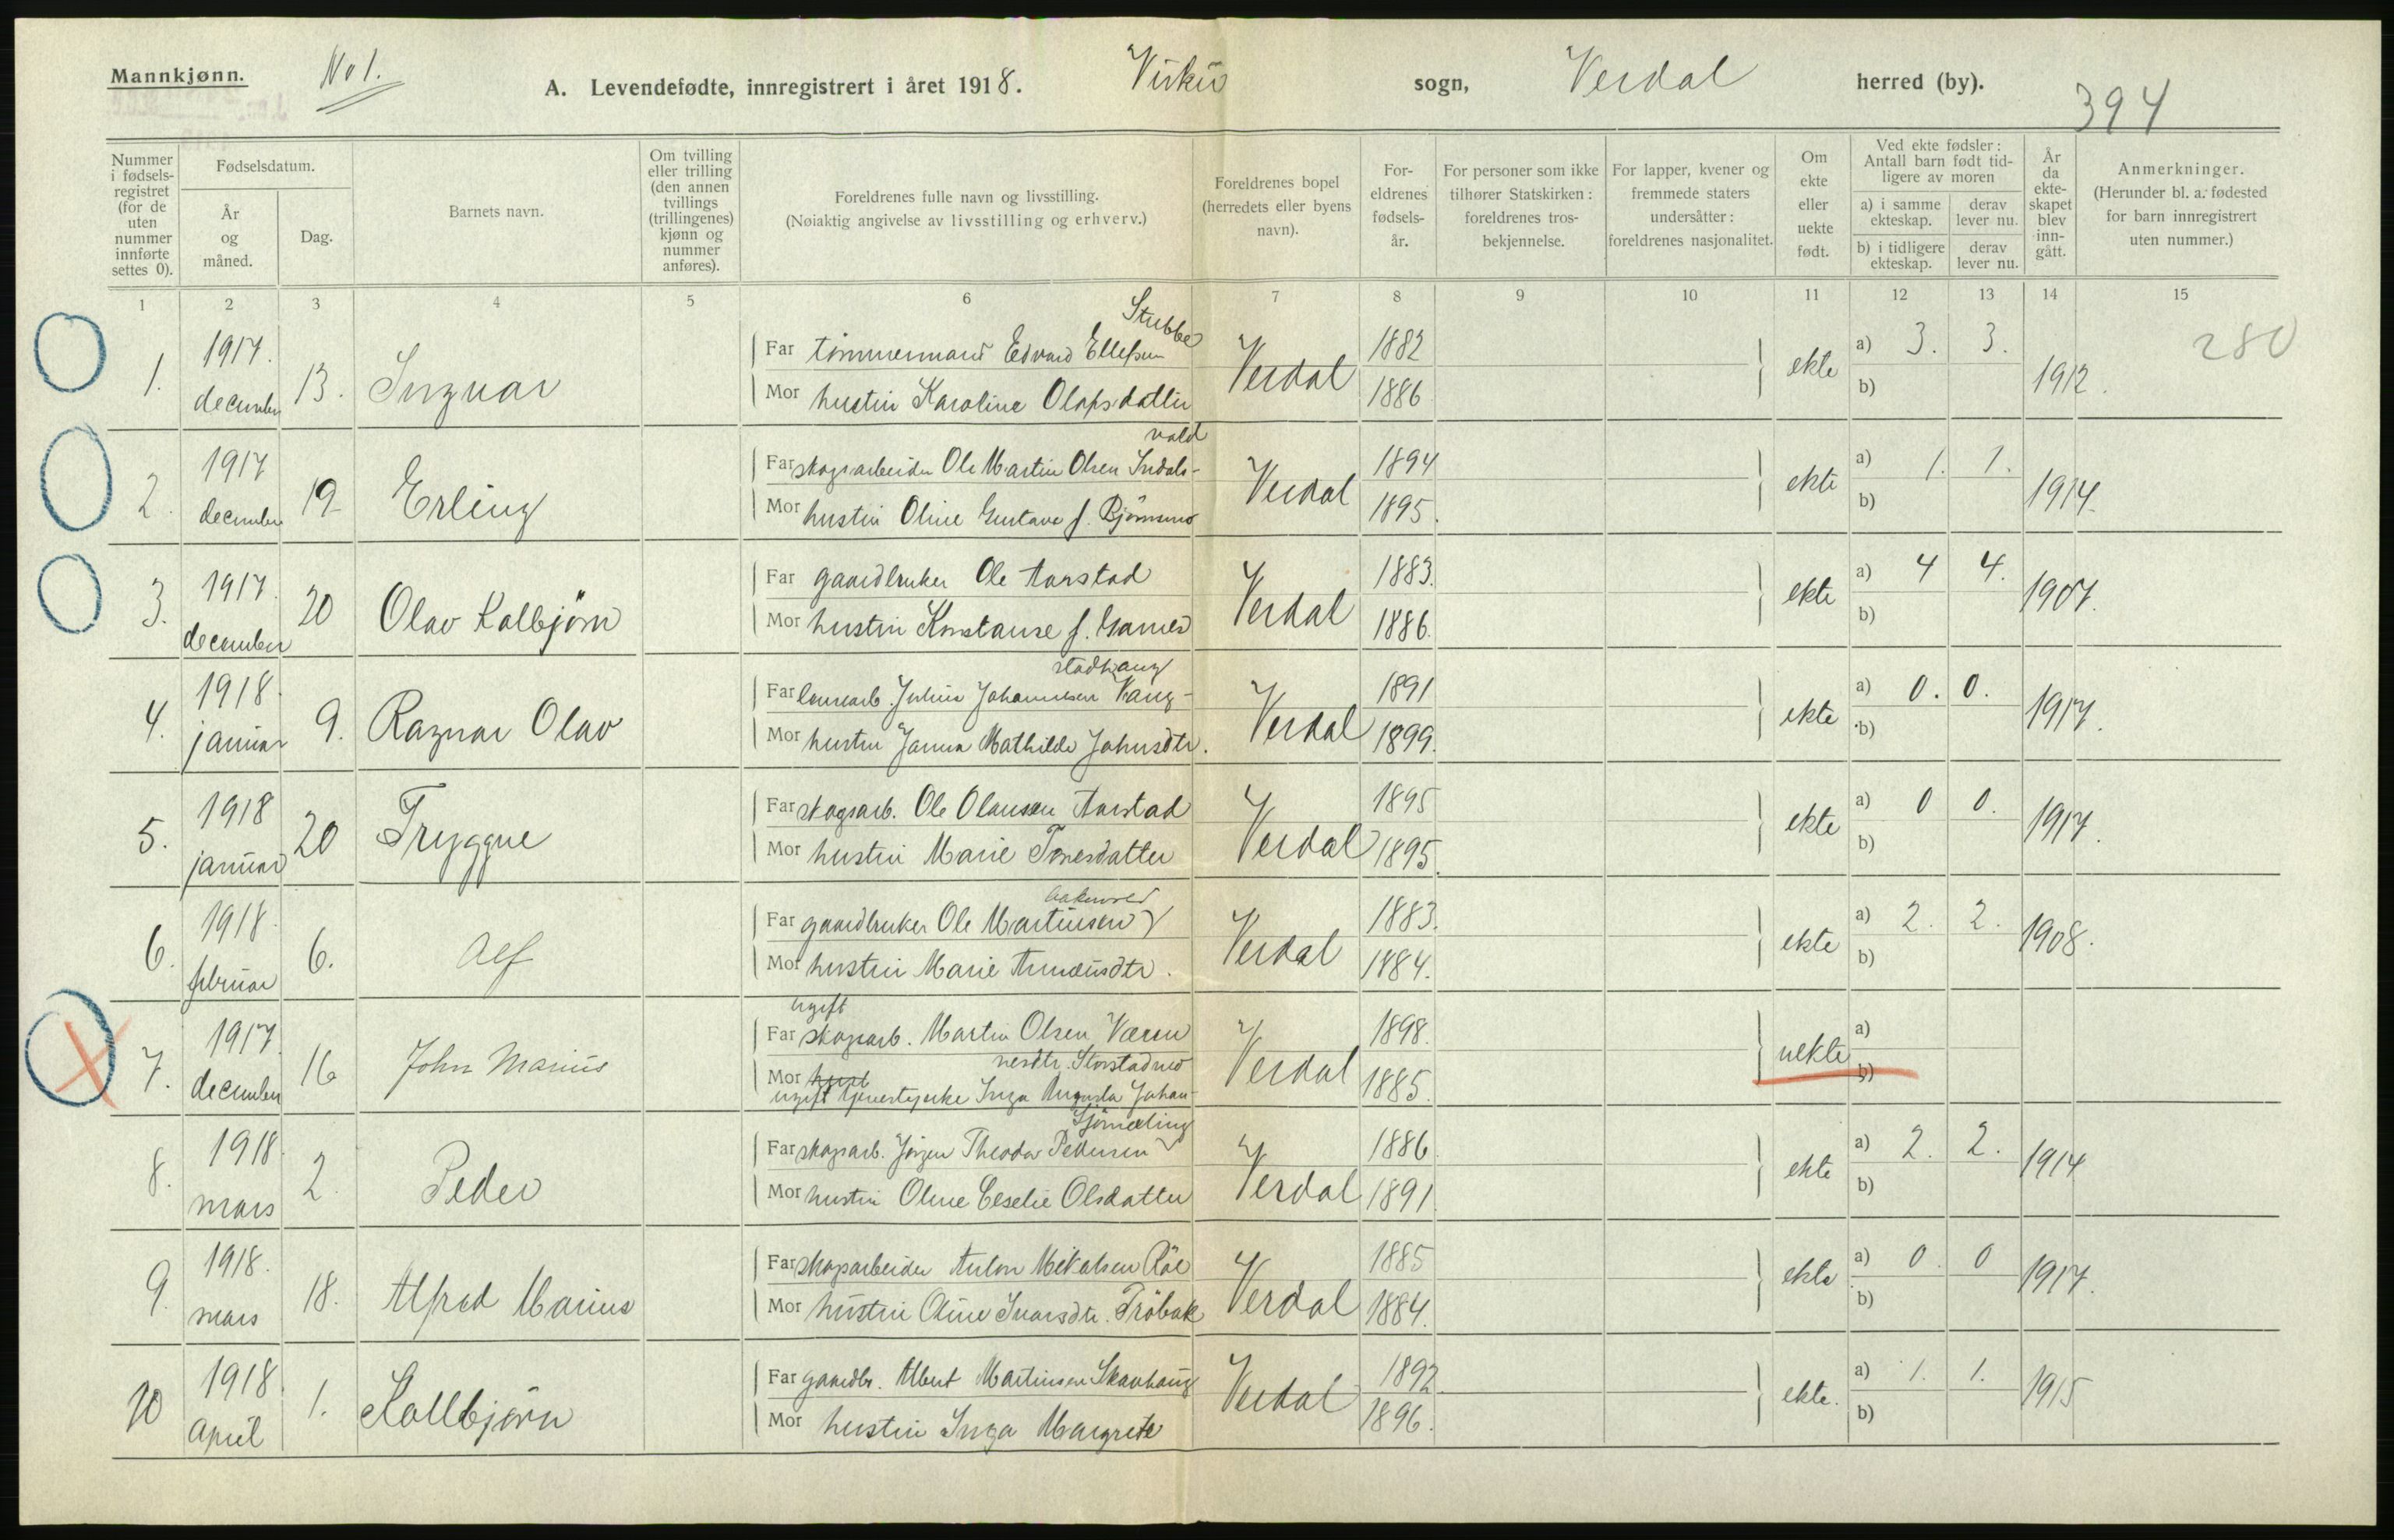 Mannkjønn.
No 1.
A. Levendefødte, innregistrert i året 1918.
sogn,
Verdal
herred (by).
394
Nummer i fødsels-registret (for de uten nummer innførte settes 0).
Fødselsdatum.
År og måned.
Dag.
Barnets navn.
Om tvilling eller trilling (den annen tvillings (trillingenes) kjønn og nummer anføres).
Foreldrenes fulle navn og livsstilling.
(Nøiaktig angivelse av livsstilling og erhverv.)
Foreldrenes bopel (herredets eller byens navn).
For-eldrenes fødsels-år.
For personer som ikke tilhører Statskirken: foreldrenes tros-bekjennelse.
For lapper, kvener og fremmede staters undersåtter: foreldrenes nasjonalitet.
Om ekte eller uekte født.
Ved ekte fødsler: Antall barn født tid-ligere av moren
a) i samme ekteskap.
derav lever nu.
b) i tidligere ekteskap.
derav lever nu.
År da ekte-skapet blev inn-gått.
Anmerkninger.
(Herunder bl. a. fødested for barn innregistrert uten nummer.)
1 2 3 4 5 6 7 8 9 10 11 12 13 14 15
280
1. 1917. december 13. Ingvar
Stubbe
Far tømmermand Edvard Ellefsen Verdal 1882 ekte a) 3. 3. 1912.
Mor hustru Karoline Olafsdatter 1886 b)
2. 1917 december 19 Erling
vald
Far skogsarbeider Ole Martin Olsen Indals- Verdal 1894 ekte a) 1. 1. 1914.
Mor hustru Oline Gustava f. Bjørnsmo 1895. b)
3. 1917. december 20 Olav Kolbjørn
Far gaardbruker Ole Aarstad Verdal 1883. ekte a) 4 4. 1907.
Mor hustru Konstanse f. Garnes 1886. b)
4. 1918. januar 9. Ragnar Olav
stadhaug
Far Julius Johannesen Vang- Verdal 1891 ekte a) 0. 0. 1917.
Mor hustru Janna Mathilde Johnsdtr. 1899. b)
5. 1918 januar 20 Tryggve
Far skogsarb. Ole Olausen Aarstad Verdal 1895 ekte a) 0 0. 1917.
Mor hustru Marie Tonesdatter 1895. b)
6. 1918. februar 6. Alf
Far gaardbruker Ole Martinsen Verdal 1883. ekte a) 2. 2. 1908.
Mor hustru Marie 1884. b)
7. 1917. december 16 John Marius
ugift
Far skogsarb. Martin Olsen Verdal 1898. uekte a)
nesdtr. Storstadmo
Mor hust 1885. b)
ugift tjenestepike Inga Augusta Johan-
8. 1918. mars 2 Peder
Far skogsarb. Jørgen Theodor Pedersen Verdal 1886 ekte a) 2. 2. 1914
Mor hustru Oline Olsdatter 1891. b)
9. 1918. mars 18. Alfred Marius
Far skogsarbeider Anton Mikalsen Röe Verdal 1885 ekte a) 0. 0 1917.
Mor hustru Oline Ivarsdtr. Tröbak 1884. b)
10 1918. April 1. Kolbjørn
Far gaardbr. Albert Martinsen Skavhaug Verdal 1892 ekte. a) 1. 1. 1915
Mor hustru Inga Margrete 1896. b)